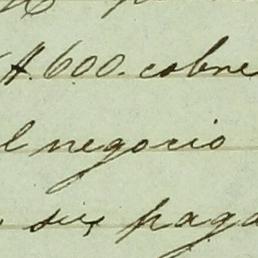 600. cobre
l negocio
sus paga